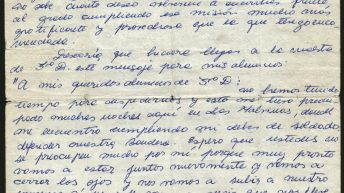 no sabe cuanto deseo volver a
al grado cumpliendo esa misión mucho más
gratificante y ponderosa que la que tengo encomendada.
Desearía que hiciera llegar a la
de 3ro D. este mensaje para mis alumnos:
"A mis queridos alumnos de 3ro D:
no hemos tenido
tiempo para despedirnos y esto me tuvo preocu-
pado muchas noches aquí en las Malvinas, donde
me encuentro cumpliendo mi deber de soldado:
defender nuestra Bandera. Espero que ustedes no
se preocupen mucho por mi porque muy pronto
vamos a estar juntos nuevamente y vamos a
cerrar los ojos y nos vamos a subir a nuestro